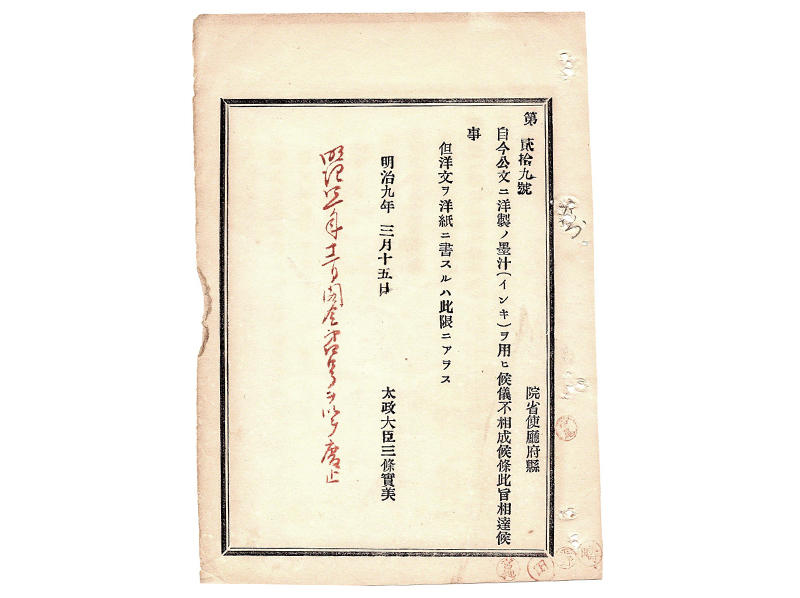 第貳拾九號
院省使廳府縣
自今公文ニ洋製ノ墨汁(インキ)ヲ用ヒ候儀不相成候條此旨相達候
事
但洋文ヲ洋紙ニ書スルハ此限ニアラス
明治九年 三月十五日
太政大臣三條實美
閣令 号ヲ以テ廢止